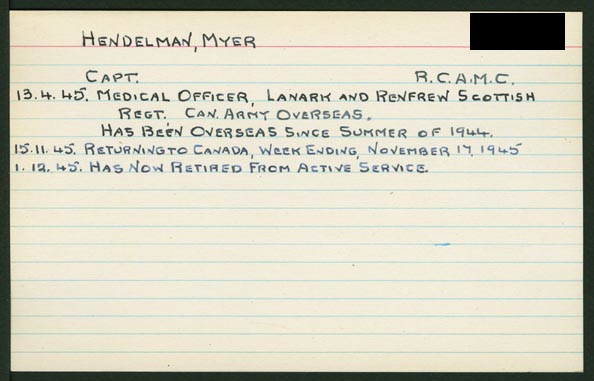 HENDELMAN, MYER
CAPT. R.C.A.M.C.
13.4.45. MEDICAL OFFICER, LANARK AND RENFREW SCOTTISH
REGT. CAN. ARMY OVERSEAS.
HAS BEEN OVERSEAS SINCE SUMMER OF 1944.
15.11.45. RETURNING TO CANADA, WEEK ENDING, NOVEMBER 17, 1945
1.12.45. HAS NOW RETIRED FROM ACTIVE SERVICE.